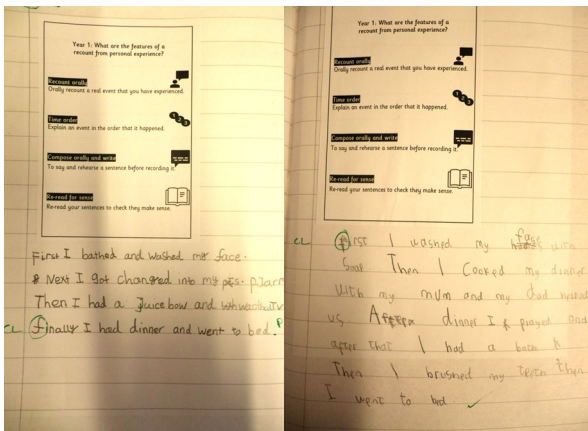 Year 1: What are the features of a
recount from personal experience?
Recount orally
Orally recount a real event that you have experienced.
Time order
Explain an event in the order that it happened.
1 2 3
Compose orally and write
To say and rehearse a sentence before recording it.
Re-read for sense
Re-read your sentences to check they make sense.
First I bathed and washed my face.
Next I got changed into my pjs.
Then I had a Juicebow and
CL Finally I had dinner and went to bed.
Year 1: What are the features of a
recount from personal experience?
Recount orally
Orally recount a real event that you have experienced.
Time order
Explain an event in the order that it happened.
1 2 3
Compose orally and write
To say and rehearse a sentence before recording it.
Re-read for sense
Re-read your sentences to check they make sense.
CL first I washed my face with
Then I Cooked my dinner
with my mum and my dad
us dinner I prayed and
after that I had a
Then I brushed my then
I went to bed